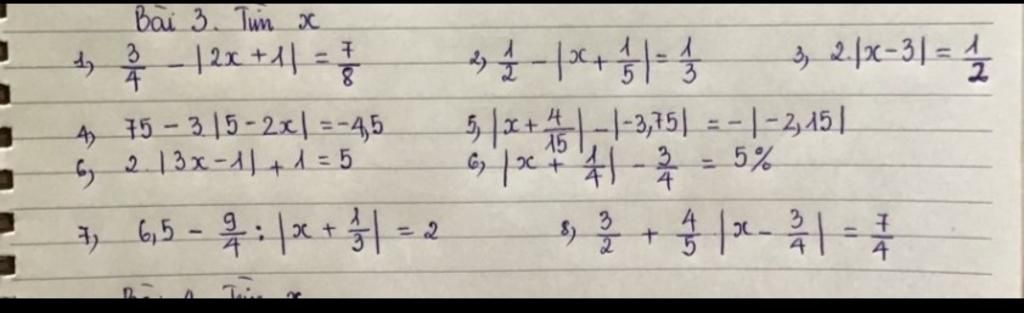 Bài 3. Tìm x
1, 3/4 - |2x + 1| = 7/8 2, 1/2 - |x + 1/5| = 1/3 3, 2.|x - 3| = 1/2
4, 75 - 3|5 - 2x| = -4,5 5, |x + 4/15| - |-3,75| = -|-2,15|
6, 2.|3x - 1| + 1 = 5 6, |x + 1/4| - 3/4 = 5%
7, 6,5 - 9/4 : |x + 1/3| = 2 8, 3/2 + 4/5 |x - 3/4| = 7/4
Tìm x